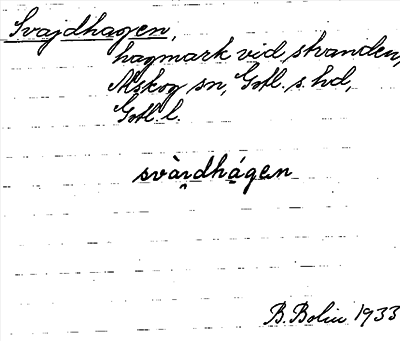 Svajdhagen,
hagmark vid stranden,
Alskog sn, Gotl. s. hd,
Gotl. l.
svài̯dhágen
B. Bolin 1933